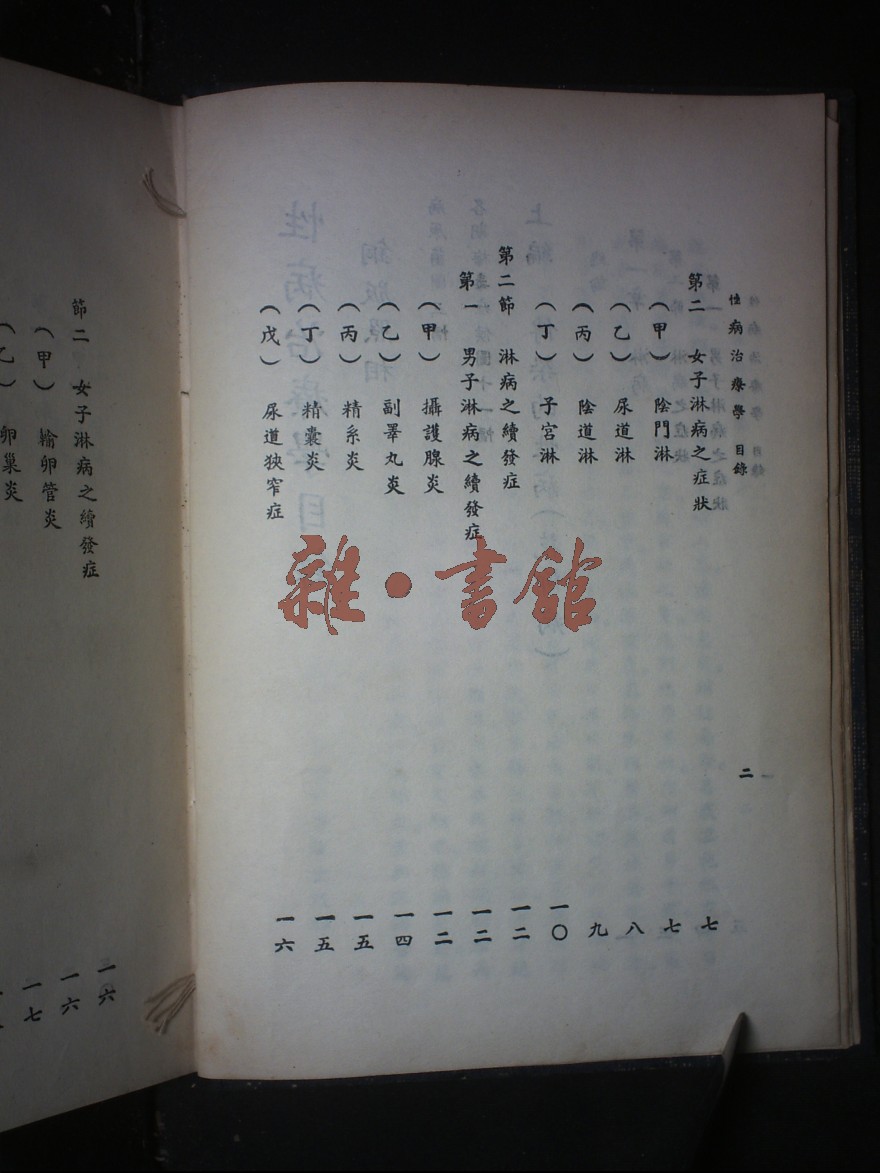 性病治療學 目錄
二
第二 女子淋病之症狀 七
（甲） 陰門淋 七
（乙） 尿道淋 八
（丙） 陰道淋 九
（丁） 子宮淋 一〇
第二節 淋病之續發症 一二
第一 男子淋病之續發症 一二
（甲） 攝護腺炎 一二
（乙） 副睪丸炎 一四
（丙） 精系炎 一五
（丁） 精囊炎 一五
（戊） 尿道狹窄症 一六
節二 女子淋病之續發症 一六
（甲） 輸卵管炎 一六
（乙） 卵巢炎 一七
雜·書館